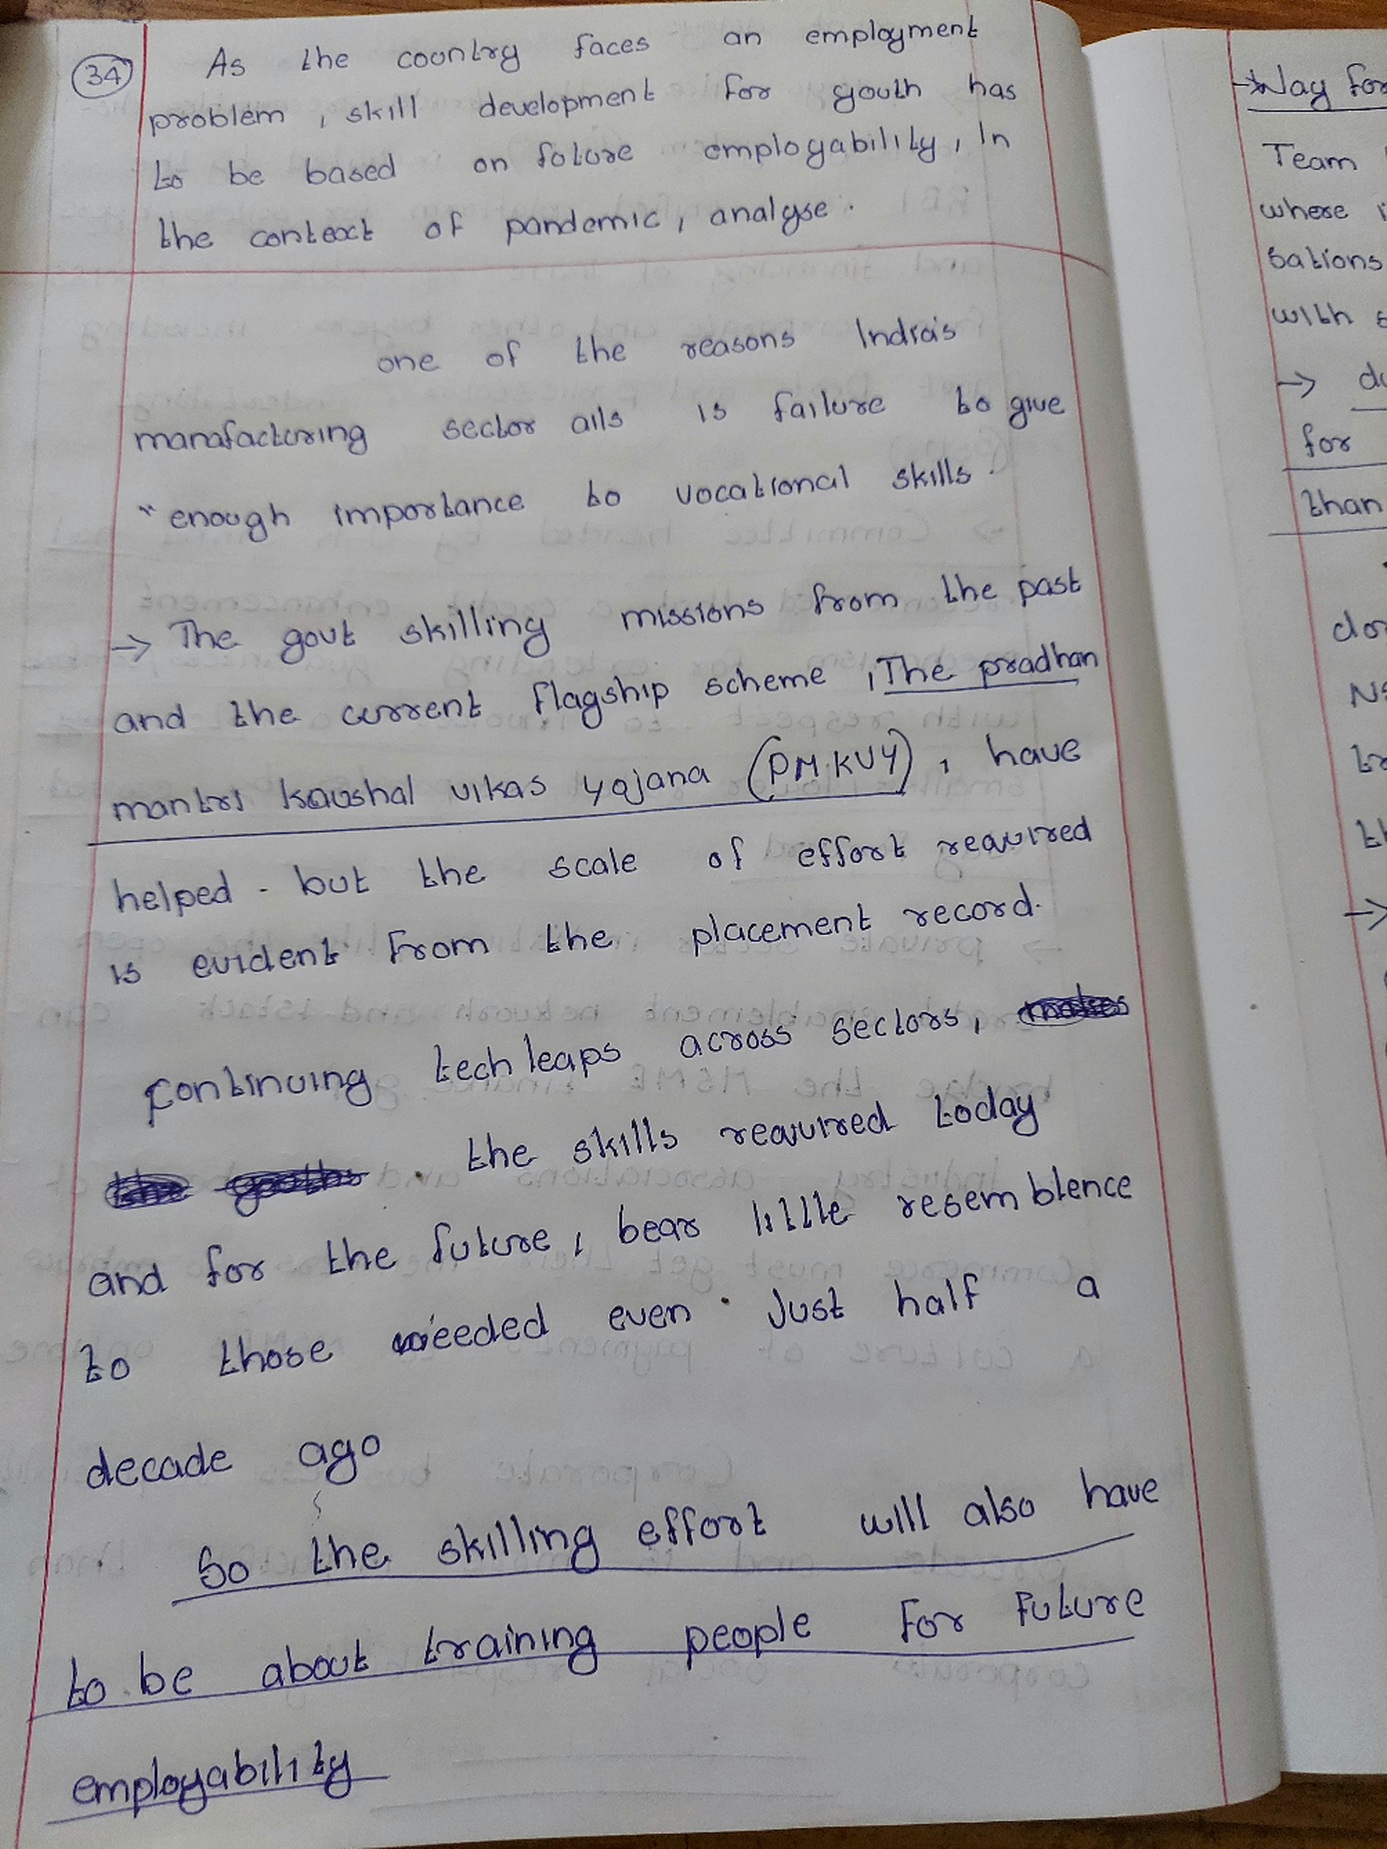 34
As the country faces an employment
problem, skill development for youth has
to be based on future employability, In
the context of pandemic, analyse.
one of the reasons India's
manafacturing sector ails is failure to give
enough importance to vocational skills.
→ The govt skilling missions from the past
and the current flagship scheme, The pradhan
mantri kaushal vikas yojana (PMKVY), have
helped - but the scale of effort required
is evident from the placement record.
continuing tech leaps across sectors,
the skills required today
and for the future, bear little resemblence
to those needed even Just half a
decade ago
So the skilling effort will also have
to be about training people for future
employability
→ Way for
Team
where
sations
with
→
for
than